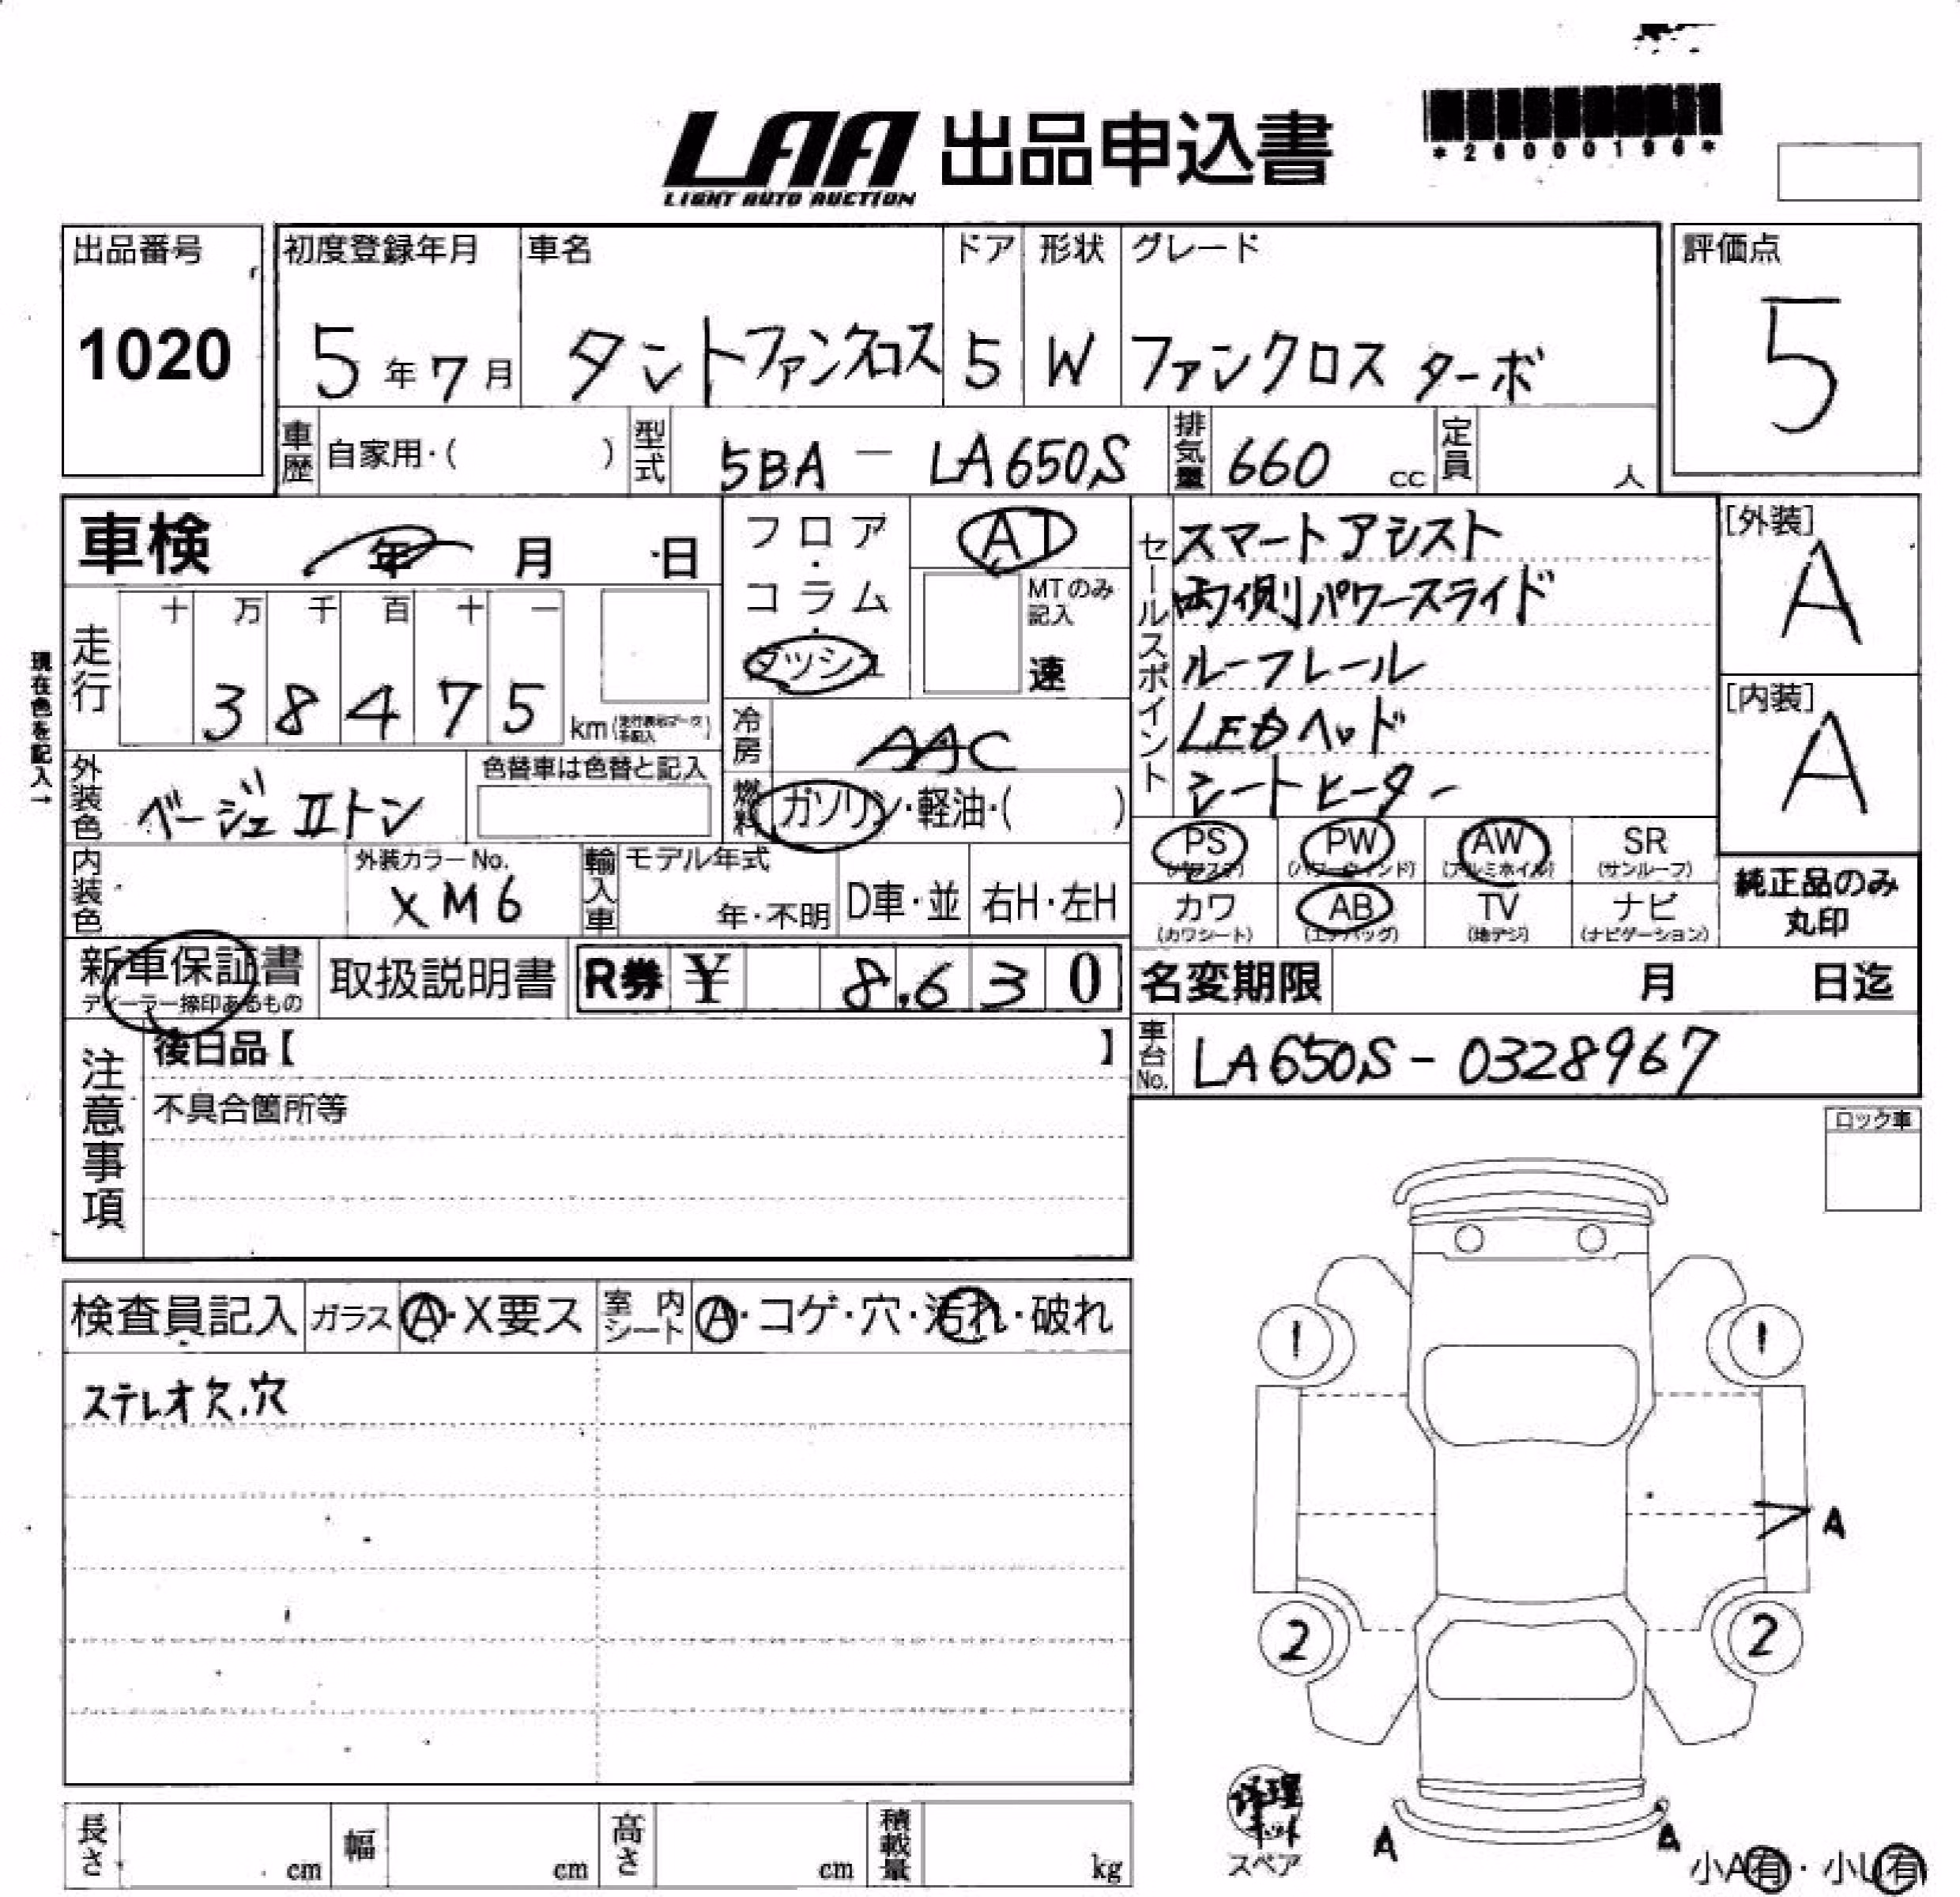 LAA 出品申込書
LIGHT AUTO AUCTION
出品番号 初度登録年月 車名 ドア 形状 グレード 評価点
1020 5年7月 タントファンクロス 5 W ファンクロス ターボ 5
車歴 自家用・( ) 型式 5BA - LA650S 排気量 660 cc 定員 人
車検 年 月 日 フロア・コラム・ダッシュ AT
MTのみ記入 速
現在色を記入→
走行 十 万 千 百 十 一
3 8 4 7 5 km
冷房 AAC
外装色 ベージュⅡトン 色替車は色替と記入
燃料 ガソリン・軽油・( )
内装色 外装カラーNo. XM6 輸入車 モデル年式 年・不明 D車・並 右H・左H
セールスポイント
スマートアシスト
両側パワースライド
ルーフレール
LEDヘッド
シートヒーター
[外装] A
[内装] A
PS PW AW SR
(パワステ) (パワーウィンド) (アルミホイル) (サンルーフ)
カワ AB TV ナビ
(カワシート) (エアバッグ) (地デジ) (ナビゲーション)
純正品のみ
丸印
新車保証書 取扱説明書 R券 ¥ 8,630
ディーラー捺印あるもの
名変期限 月 日迄
車台No. LA650S-0328967
注意事項
後日品【 】
不具合箇所等
ロック車
検査員記入 ガラス A・X要ス 室内シート A・コゲ・穴・汚れ・破れ
ステレオ欠.穴
1 1
A
2 2
修理キット
スペア
A A
小A有・小U有
長さ cm 幅 cm 高さ cm 積載量 kg